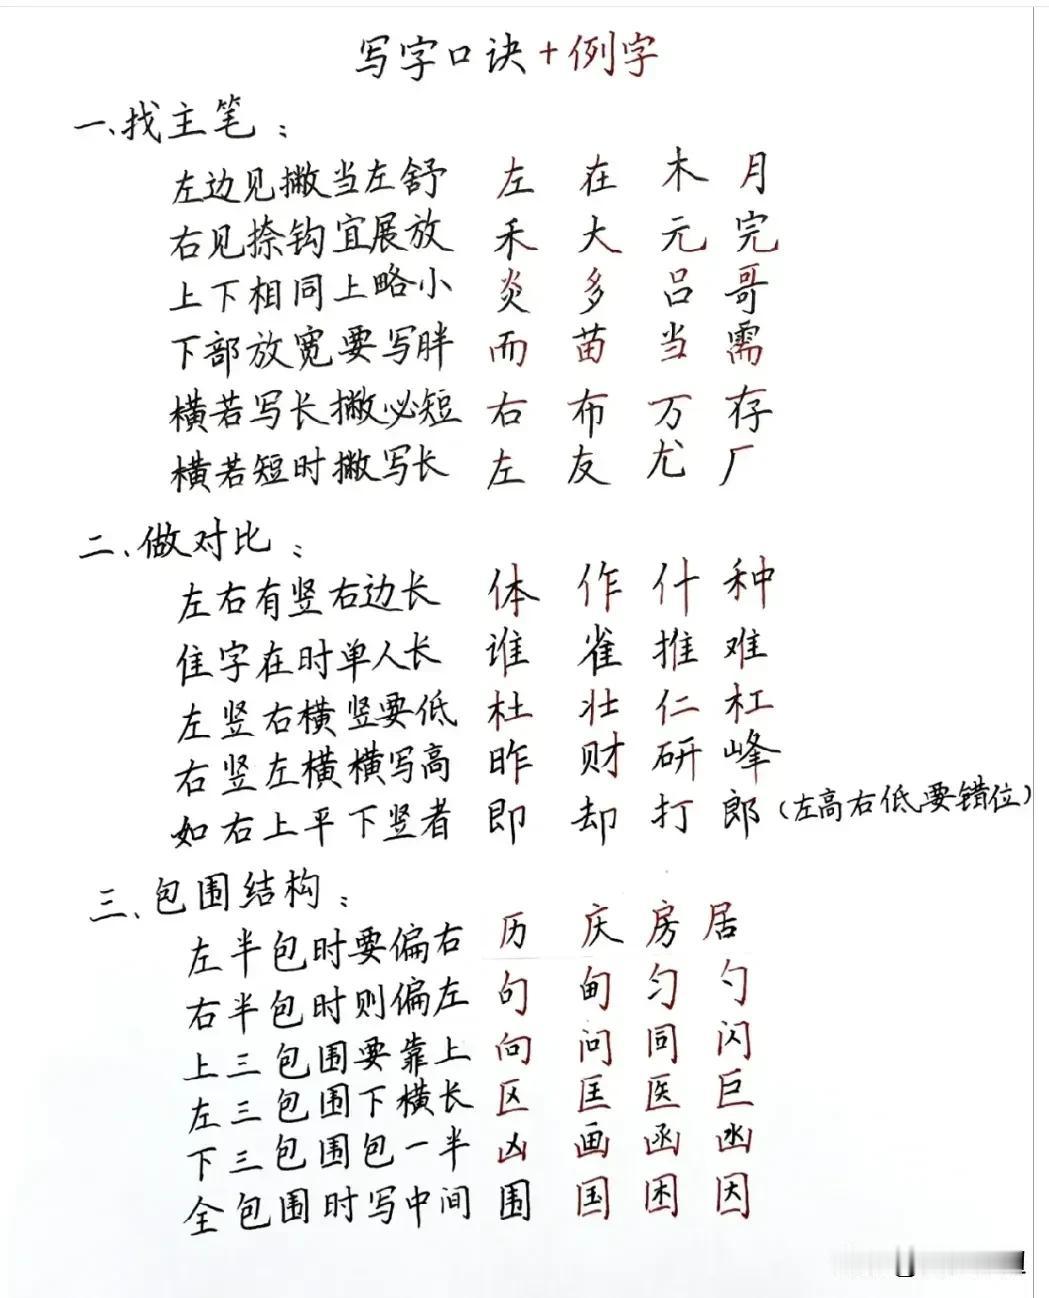 写字口诀+例字
一、找主笔:
左边见撇当左舒 左 在 木 月
右见捺钩宜展放 禾 大 元 完
上下相同上略小 炎 多 吕 哥
下部放宽要写胖 而 苗 当 需
横若写长撇必短 右 布 万 存
横若短时撇写长 左 友 尤 厂
二、做对比:
左右有竖右边长 体 作 什 种
隹字在时单人长 谁 雀 推 难
左竖右横竖要低 杜 壮 仁 杠
右竖左横横写高 昨 财 研 峰
如右上平下竖者 即 却 打 郎(左高右低要错位)
三、包围结构:
左半包时要偏右 历 庆 房 居
右半包时则偏左 句 甸 匀 勺
上三包围要靠上 向 问 同 闪
左三包围下横长 区 匡 医 巨
下三包围包一半 凶 画 函 凼
全包围时写中间 围 国 困 因